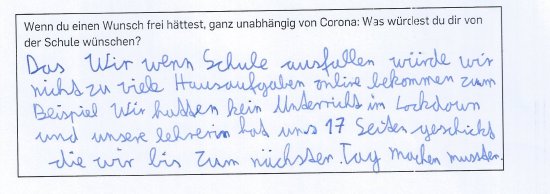 Wenn du einen Wunsch frei hättest, ganz unabhängig von Corona: Was würdest du dir von
der Schule wünschen?
Das Wir wenn Schule ausfallen würde wir
nicht zu viele Hausaufgaben online bekommen zum
Beispiel Wir hatten kein Unterricht im Lockdown
und unsere lehrerin hat uns 17 Seiten geschickt
die wir bis zum nächsten Tag machen mussten.